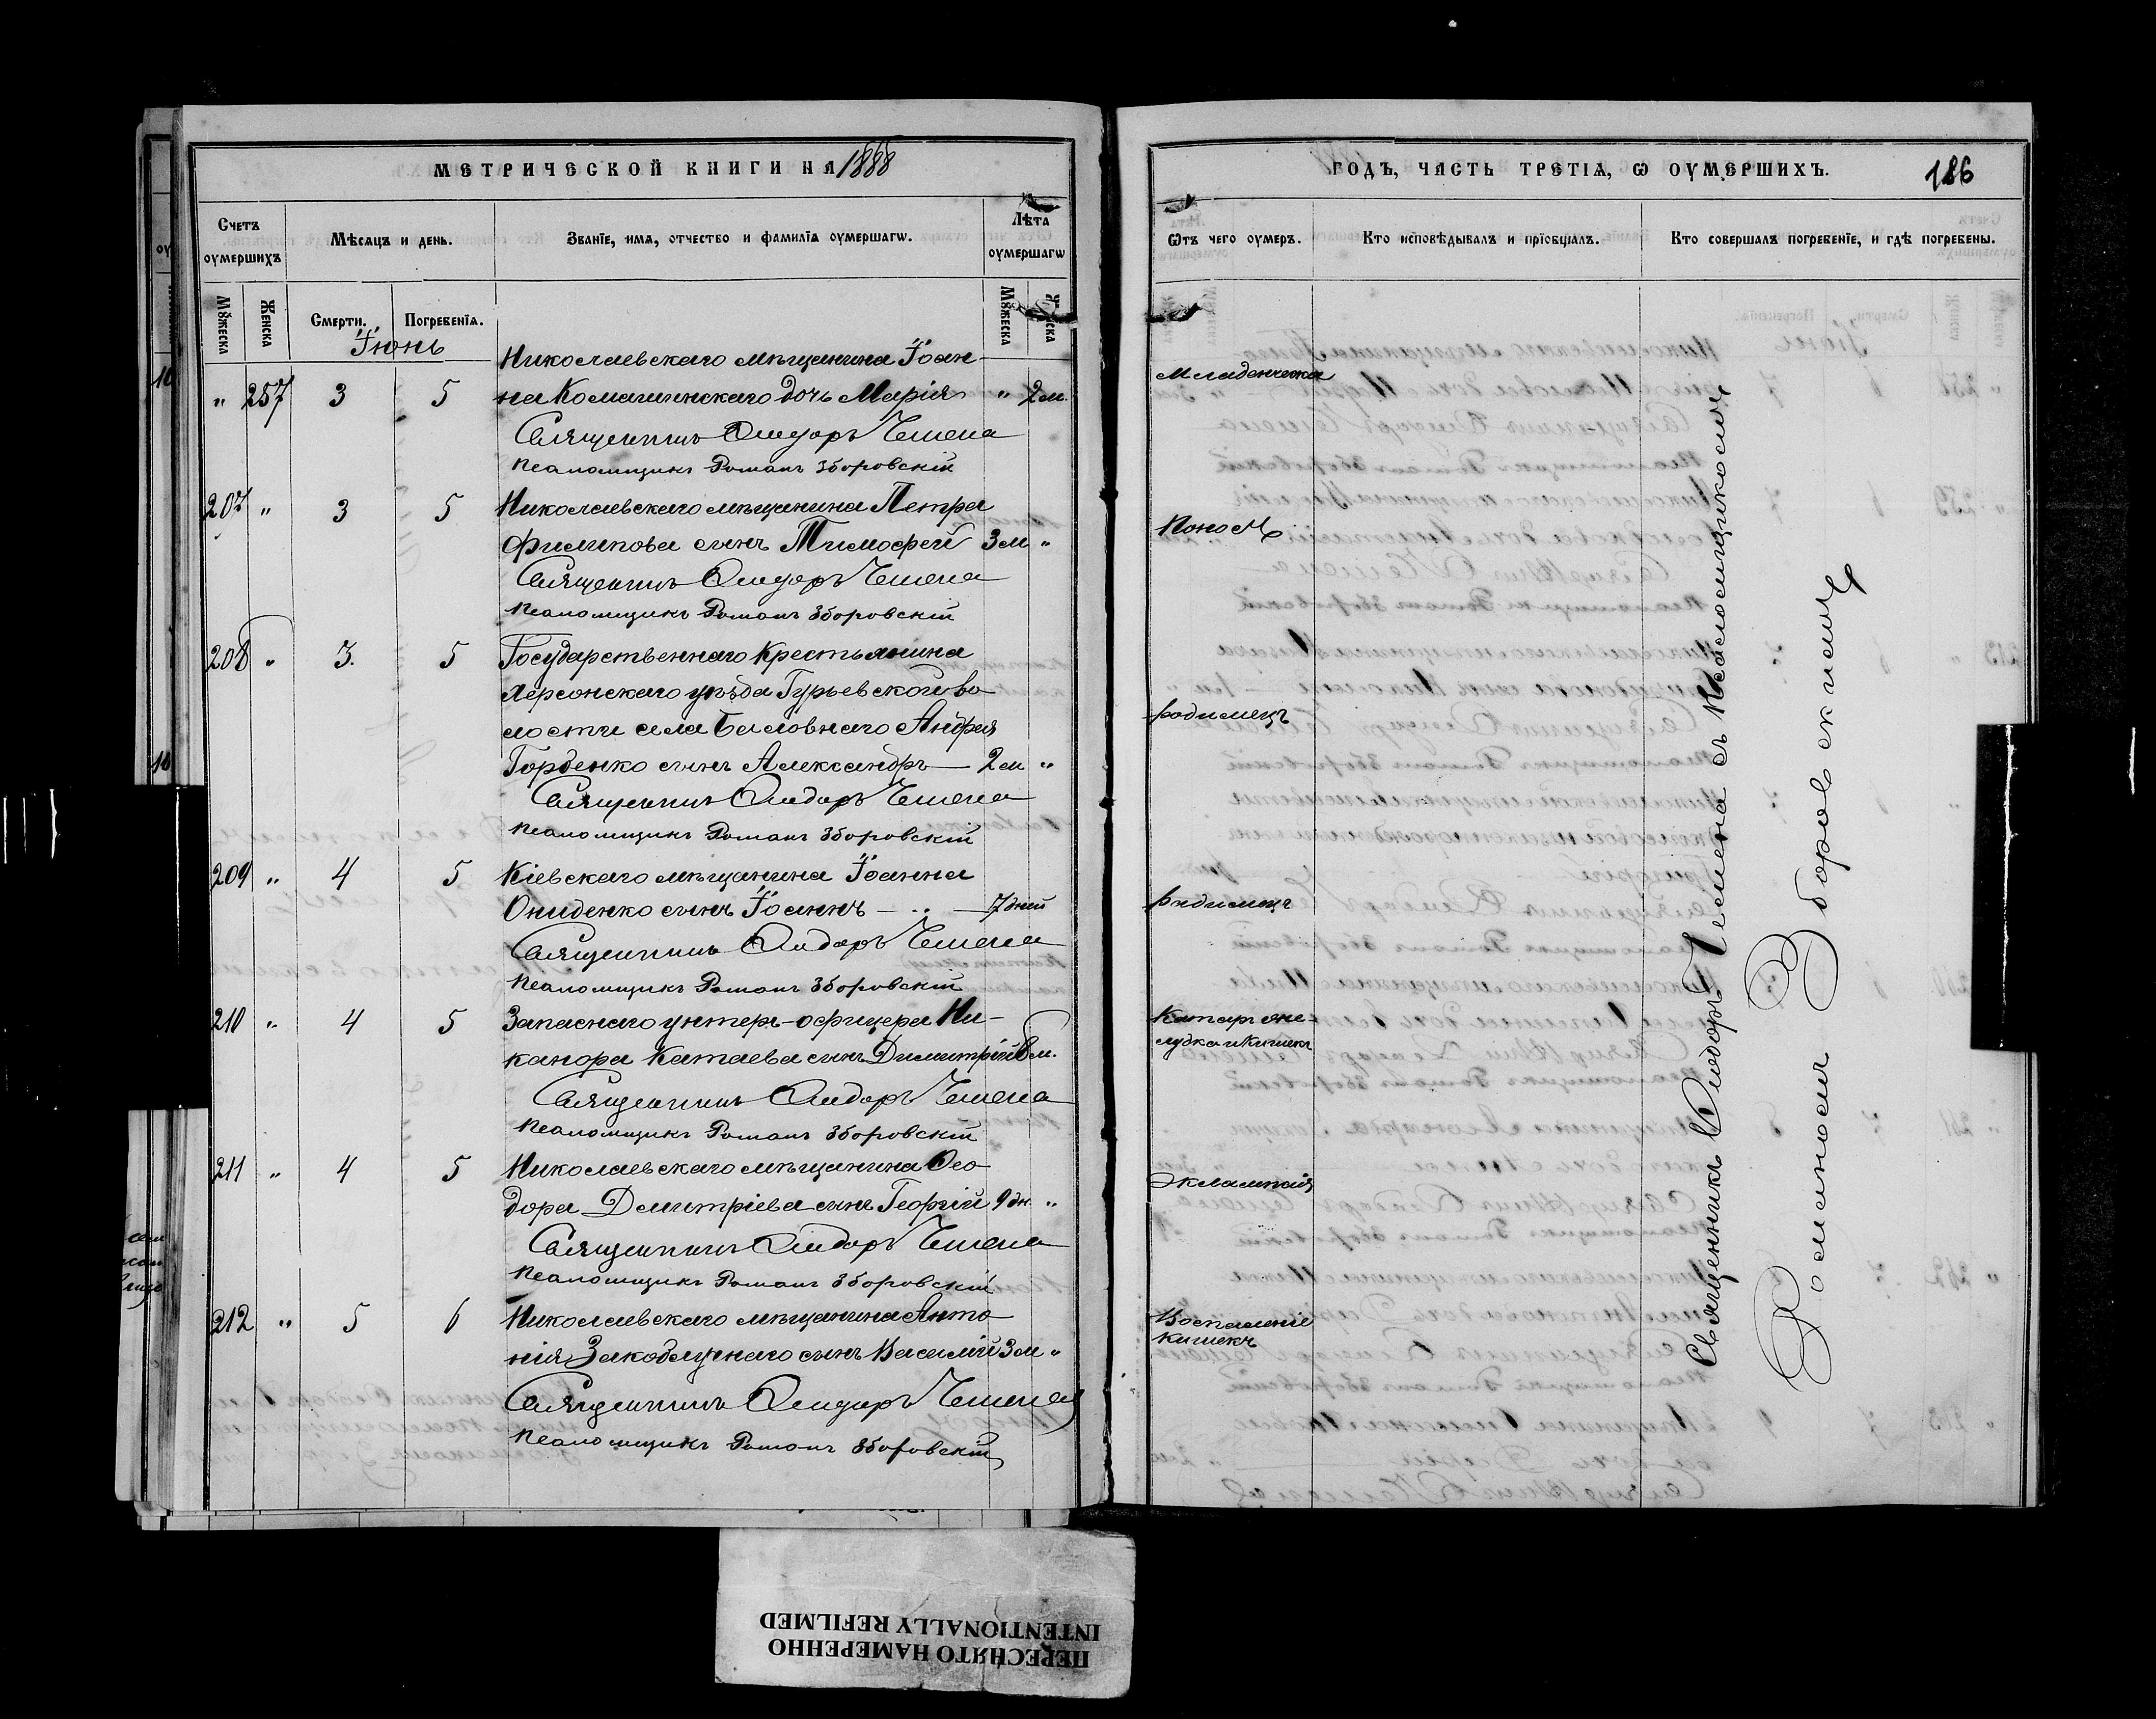 МЕТРИЧЕСКОЙ КНИГИ НА 1888
Счетъ оумершихъ
Мѣсяцъ и день.
Званїе, имя, отчество и фамилїя оумершагѡ.
Лѣта оумершагѡ
Мꙋжеска
Женска
Смерти.
Погребенїя.
Мꙋжеска
Іюнь
Николаевскаго мѣщанина Іоан-
" 257 3 5 на Комашинскаго дочь Марія " 2 м.
Священникъ Ѳиодоръ Чемена
Псаломщикъ Романъ Зборовскій
207 " 3 5 Николаевскаго мѣщанина Петра
Филипова сынъ Тимофей 3 м "
Священникъ Ѳиодоръ Чемена
Псаломщикъ Романъ Зборовскій
208 " 3. 5 Государственнаго крестьянина
Херсонскаго уѣзда Гурьевской во
лости села Баловнаго Андрея
Горденко сынъ Александръ — 2 м "
Священникъ Ѳиодоръ Чемена
Псаломщикъ Романъ Зборовскій
209 " 4 5 Кіевскаго мѣщанина Іоанна
Ониденко сынъ Іоаннъ — 7 дней
Священникъ Ѳиодоръ Чемена
Псаломщикъ Романъ Зборовскій
210 " 4 5 Запаснаго унтеръ-офицера Ни-
канора Катаева сынъ Димитрій 8 м.
Священникъ Ѳиодоръ Чемена
Псаломщикъ Романъ Зборовскій
211 " 4 5 Николаевскаго мѣщанина Ѳео
дора Дмитріева сынъ Георгій 9 дн "
Священникъ Ѳиодоръ Чемена
Псаломщикъ Романъ Зборовскій
212 " 5 6 Николаевскаго мѣщанина Анто
нія Закоблучнаго сынъ Василій 3 м "
Священникъ Ѳиодоръ Чемена
Псаломщикъ Романъ Зборовскій
ГОДЪ, ЧАСТЬ ТРЕТІѦ, Ѡ ОУМЕРШИХЪ. 186
Ѿтъ чего оумеръ.
Кто исповѣдывалъ и прїобщалъ.
Кто совершалъ погребенїе, и гдѣ погребены.
Младенческа
Поносъ
родимецъ
родимецъ
Катаръ же-
лудка и кишекъ
Эклампсія
Воспаленіе
кишекъ
Священникъ Ѳиодоръ Чемена съ псаломщикомъ
Романомъ Зборовскимъ
ПЕРЕСНЯТО НАМЕРЕННО
INTENTIONALLY REFILMED